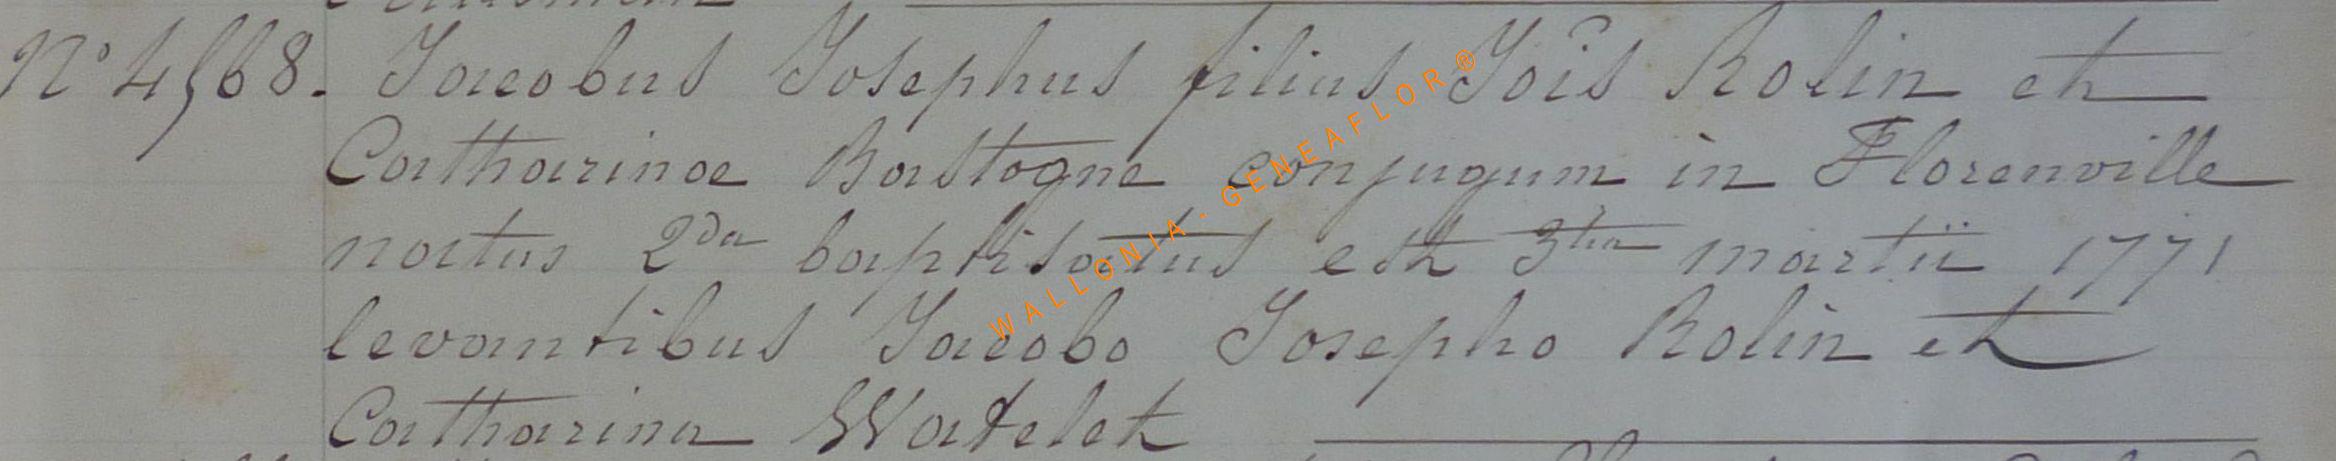 N° 4568. Jacobus Josephus filius Jois Rolin et
Catharinae Bastogne conjugum in Florenville
natus 2da baptisatus est 3tia martii 1771
levantibus Jacobo Josepho Rolin et
Catharina Watelet
WALLONIA - GENEAFLOR®